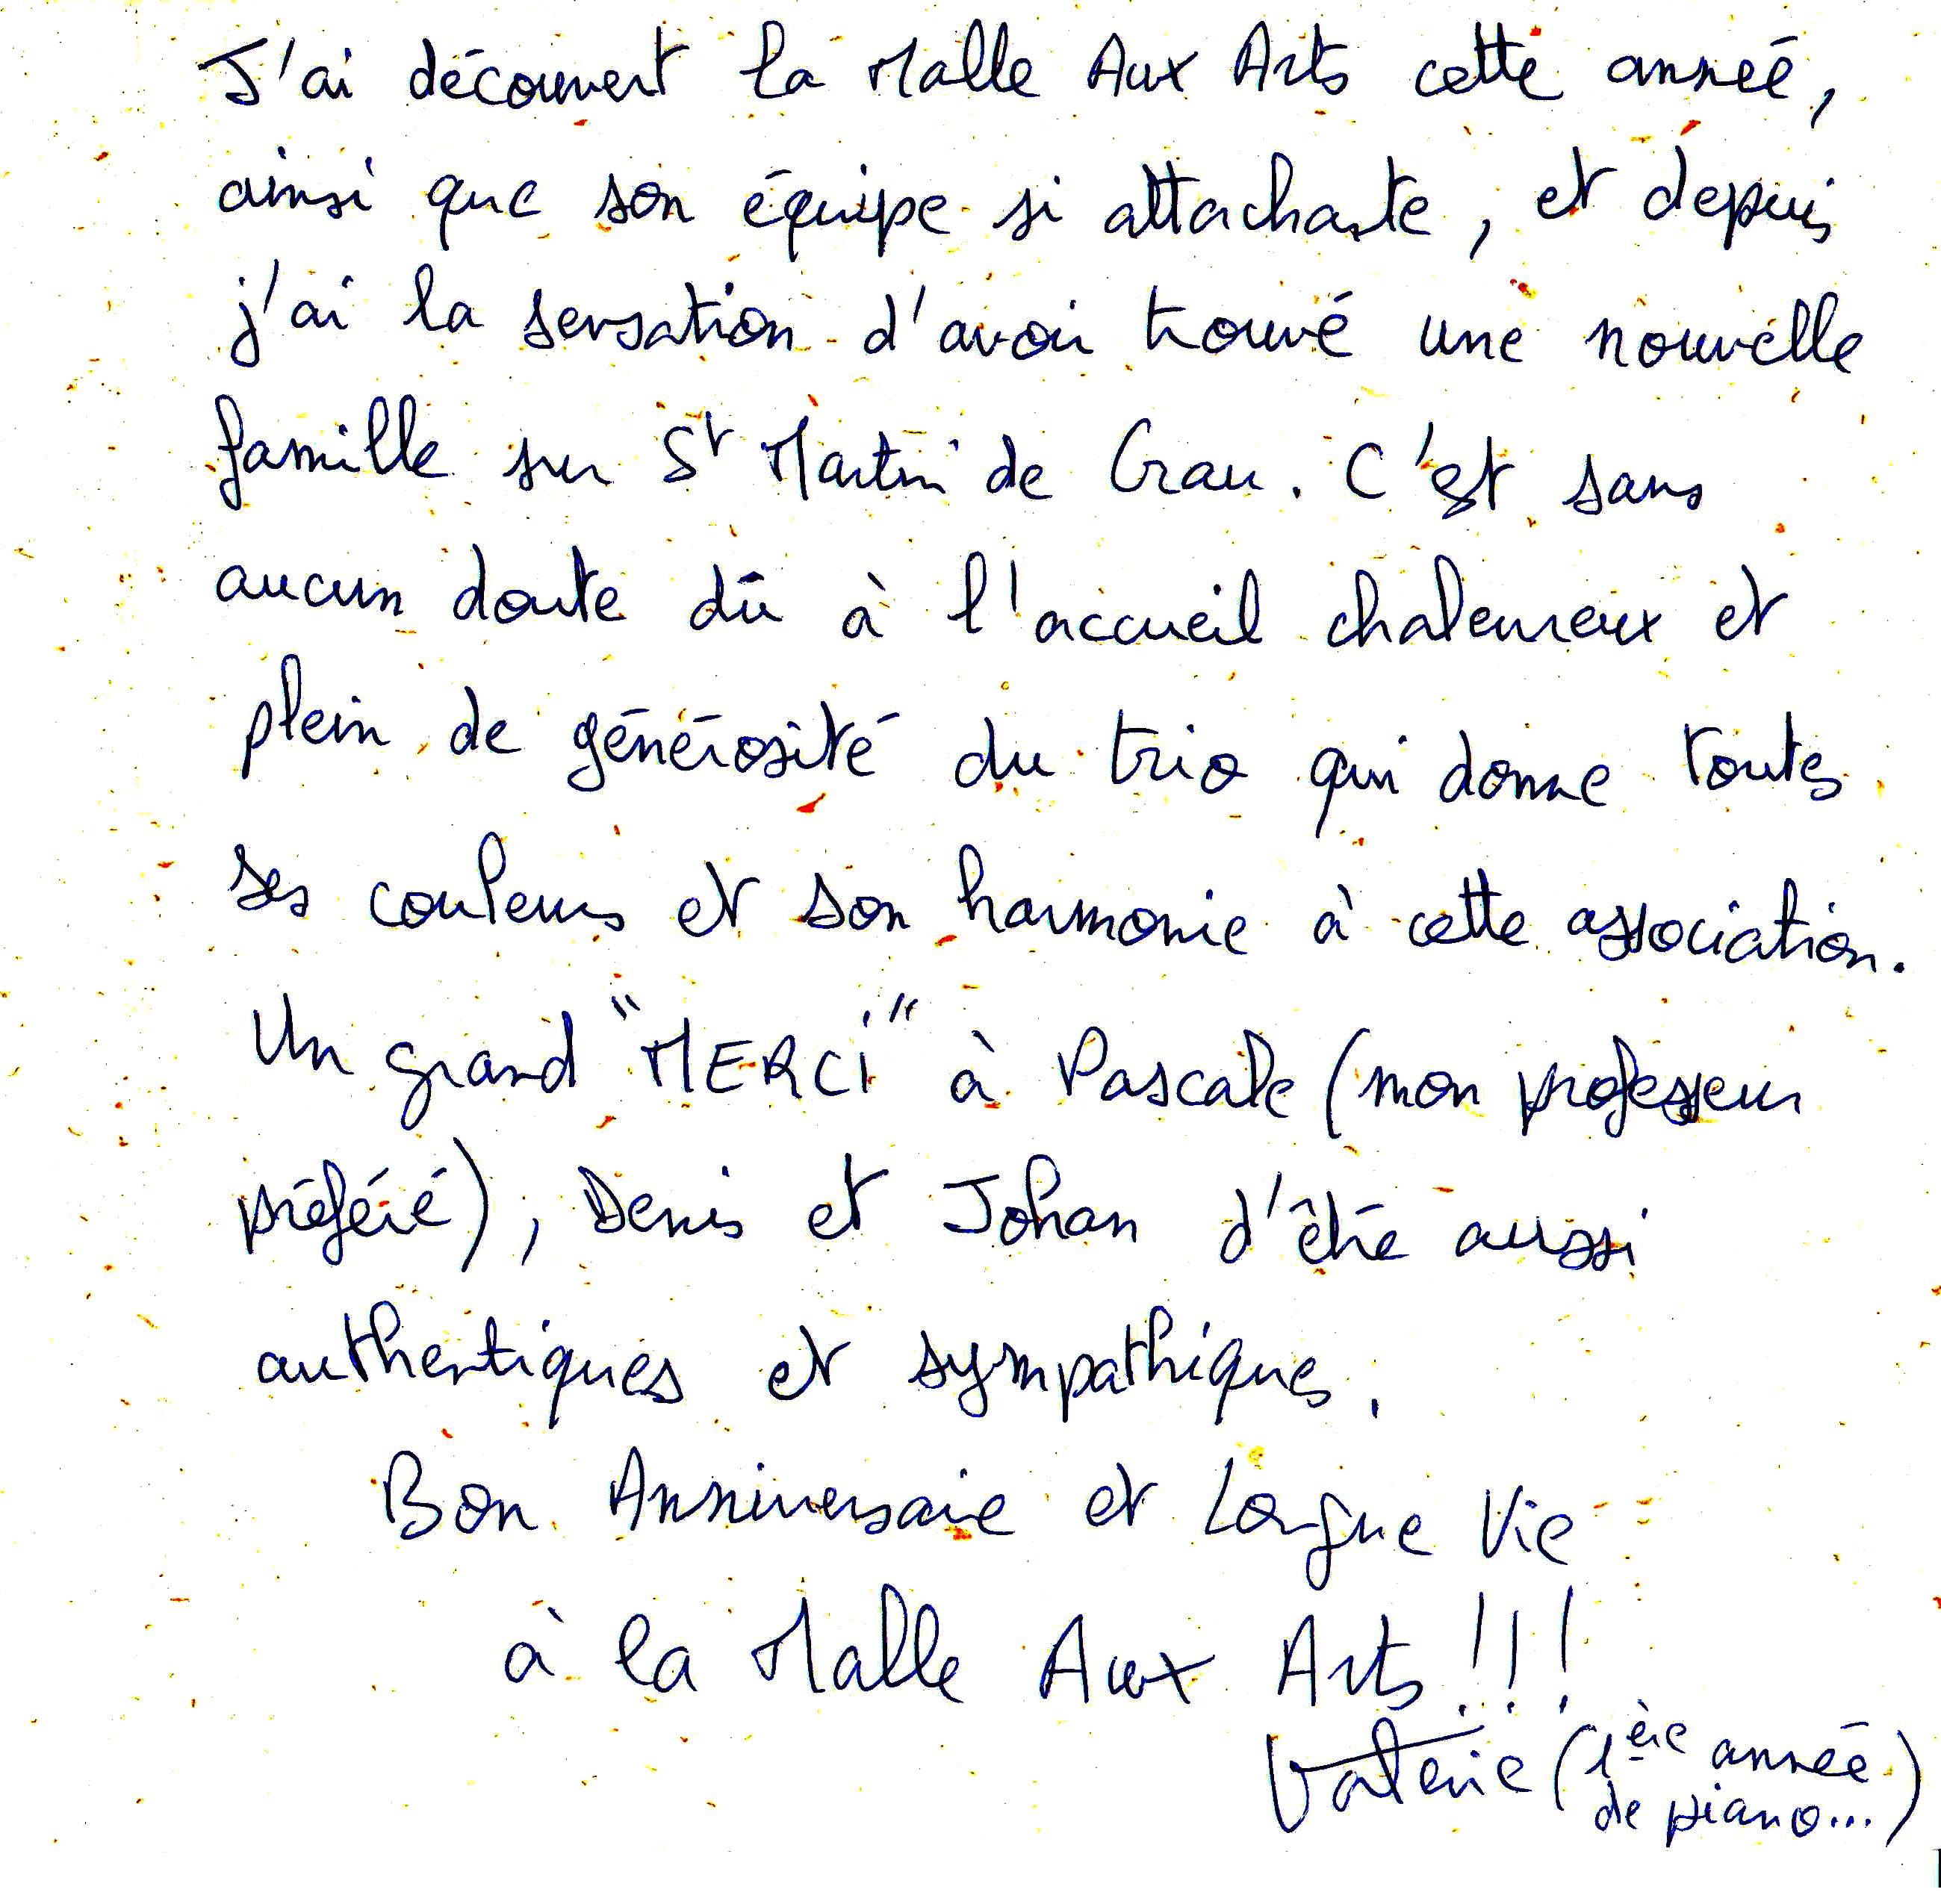 J'ai découvert la Malle Aux Arts cette année,
ainsi que son équipe si attachante, et depuis
j'ai la sensation d'avoir trouvé une nouvelle
famille sur St Martin de Crau. C'est sans
aucun doute dû à l'accueil chaleureux et
plein de générosité du trio qui donne toutes
ses couleurs et son harmonie à cette association.
Un grand "MERCI" à Pascale (mon professeur
préféré), Denis et Johan d'être aussi
authentiques et sympathiques.
Bon Anniversaire et Longue Vie
à la Malle Aux Arts !!!
Valérie (1ère année
de piano...)